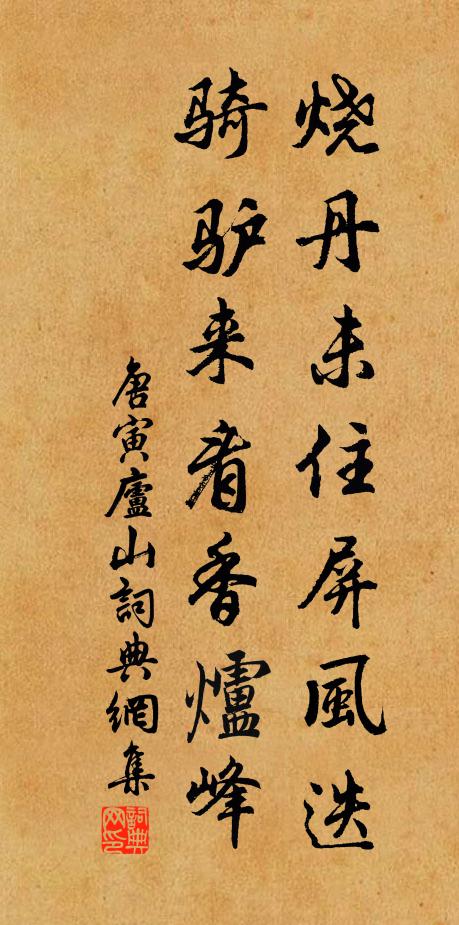 烧丹未住屏風迭
骑驴来看香爐峰
唐寅廬山詞典網集
詞典网印